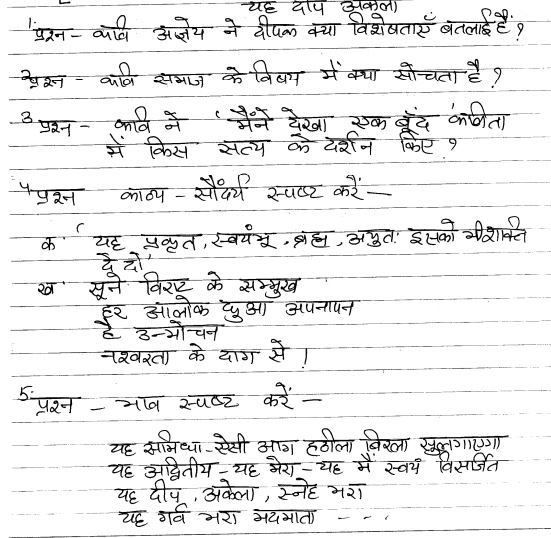 यह दीप अकेला
1. प्रश्न - कवि अज्ञेय ने दीपक क्या विशेषताएँ बतलाई हैं ?
2. प्रश्न - कवि समाज के विषय में क्या सोचता है ?
3 प्रश्न - कवि ने 'मैंने देखा एक बूँद' कविता
में किस सत्य के दर्शन किए ?
4 प्रश्न काव्य - सौंदर्य स्पष्ट करें —
क. ' यह प्रकृत, स्वयंभू, ब्रह्म, अयुतः इसको भी शक्ति
दे दो'
ख सूने विराट के सम्मुख
हर आलोक छुआ अपनापन
है उन्मोचन
नश्वरता के दाग से ।
5. प्रश्न - भाव स्पष्ट करें —
यह समिधा - ऐसी आग हठीला बिरला सुलगाएगा
यह अद्वितीय - यह मेरा - यह मैं स्वयं विसर्जित
यह दीप, अकेला, स्नेह भरा
यह गर्व भरा मदमाता - - .